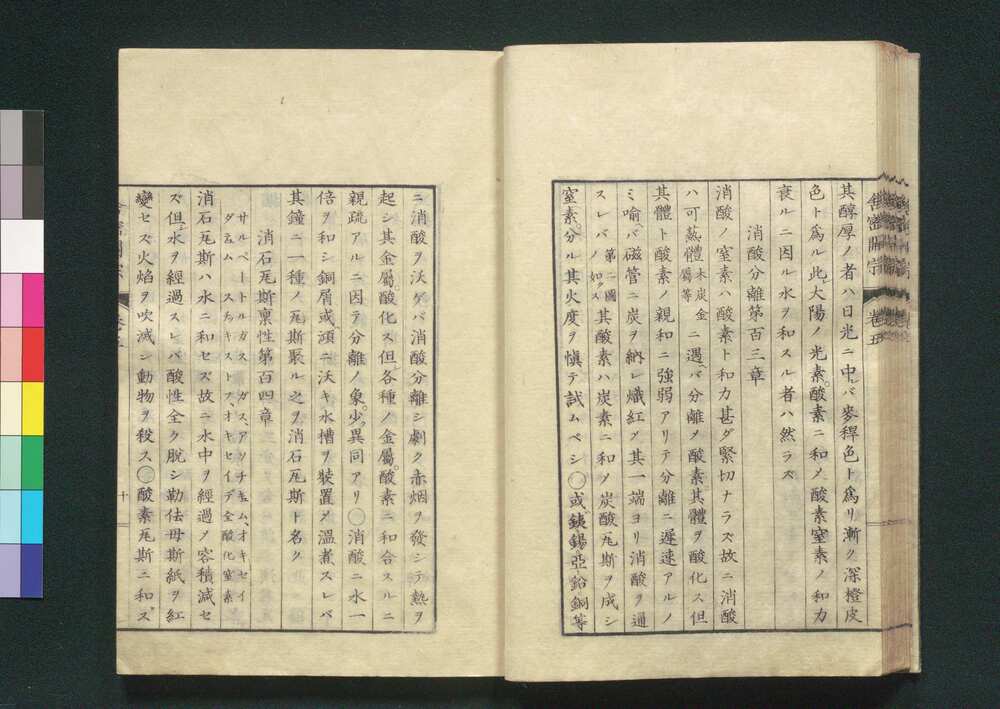 其醇厚ノ者ハ日光ニ中レバ麥稈色ト爲リ漸ク深橙皮
色ト爲ル此レ大陽ノ光素酸素ニ和〆酸素窒素ノ和力
衰ルニ因ル水ヲ和スル者ハ然ラズ
消酸分離第百三章
消酸ノ窒素ハ酸素ト和力甚ダ緊切ナラズ故ニ消酸
ハ可蒸體木炭金屬等ニ遇ヘバ分離〆酸素其體ヲ酸化ス但
其體ト酸素ノ親和ニ強弱アリテ分離ニ遲速アルノ
ミ喻バ磁管ニ炭ヲ納レ熾紅〆其一端ヨリ消酸ヲ通
スレバ第二圖ノ如クス其酸素ハ炭素ニ和〆炭酸瓦斯ヲ成シ
窒素分ル其火度ヲ愼テ試ムベシ○或銕錫亞鉛銅等
舍密開宗
卷五
ニ消酸ヲ沃ゲバ消酸分離シ劇ク赤烟ヲ發シテ熱ヲ
起シ其金屬酸化ス但各種ノ金屬酸素ニ和合スルニ
親疏アルニ因テ分離ノ象少ク異同アリ○消酸ニ水一
倍ヲ和シ銅屑或ハ頑ニ沃キ水槽ヲ裝置〆溫煮スレバ
其鐘ニ一種ノ瓦斯聚ル之ヲ消石瓦斯ト名ク
消石瓦斯稟性第百四章
サルペートルガス
ダムム スチキストフ、オキセイデ 全酸化窒素
消石瓦斯ハ水ニ和セズ故ニ水中ヲ經過〆容積減セ
ズ但シ水ヲ經過スレバ酸性全ク脫シ勒佉母斯紙ヲ紅
變セズ火焰ヲ吹滅シ動物ヲ殺ス○酸素瓦斯ニ和ズ
十